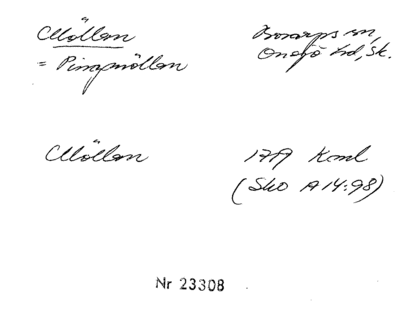 Möllen
= Pingmöllen
Bosarps sn,
Onsjö hd, Sk.
Möllen
1719 Koml
(Sko A 14:98)
Nr 23308